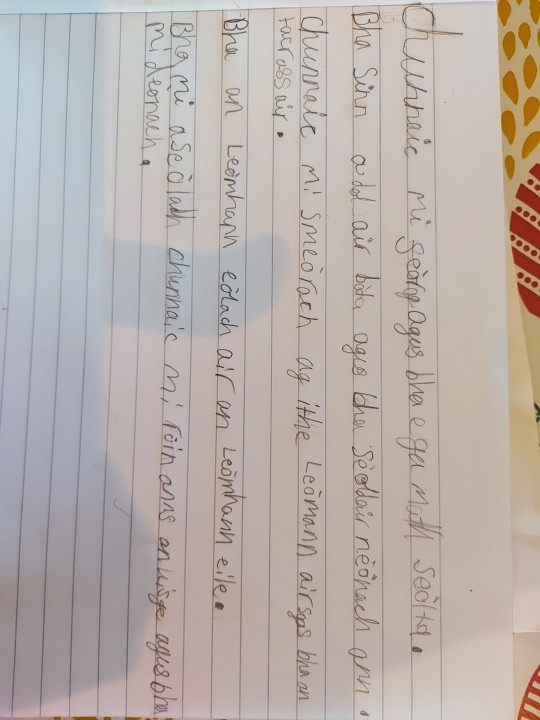 Chunnaic mi geòrg agus bha e ga math Seòlta.
Bha Sinn a dol air bàta agus bha Seòldair neònach ann.
Chunnaic mi Smeòrach ag ithe Leòmann air sgs bha an
tacrassair.
Bha an Leòmhann eòlach air an Leòmhann eile.
Bha mi aSeòladh chunnaic mi ròin anns an uisge agus bha
mi deònach.